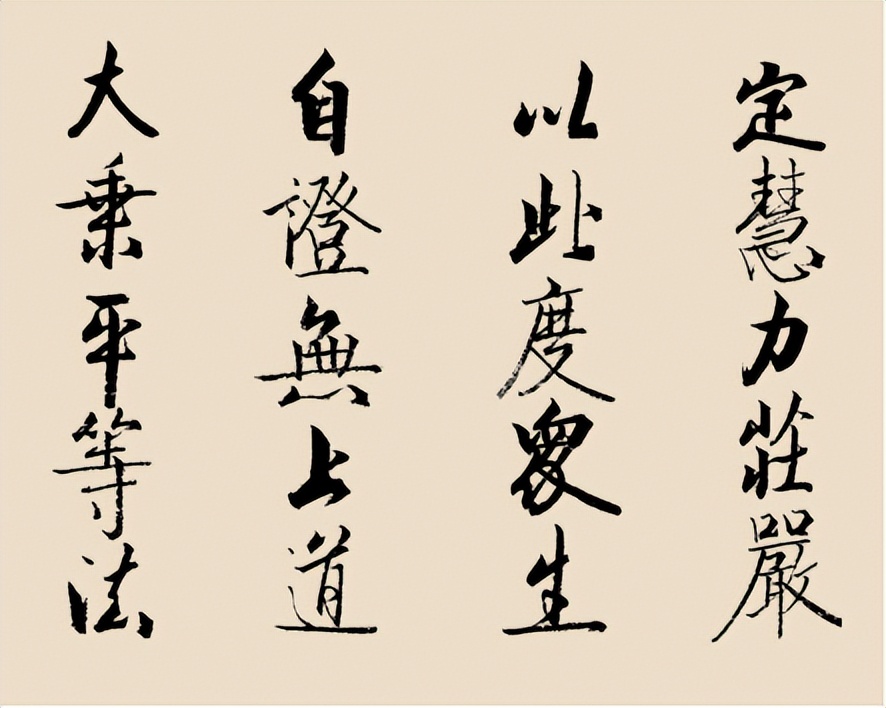 定慧力莊嚴
以此度眾生
自證無上道
大乗平等法